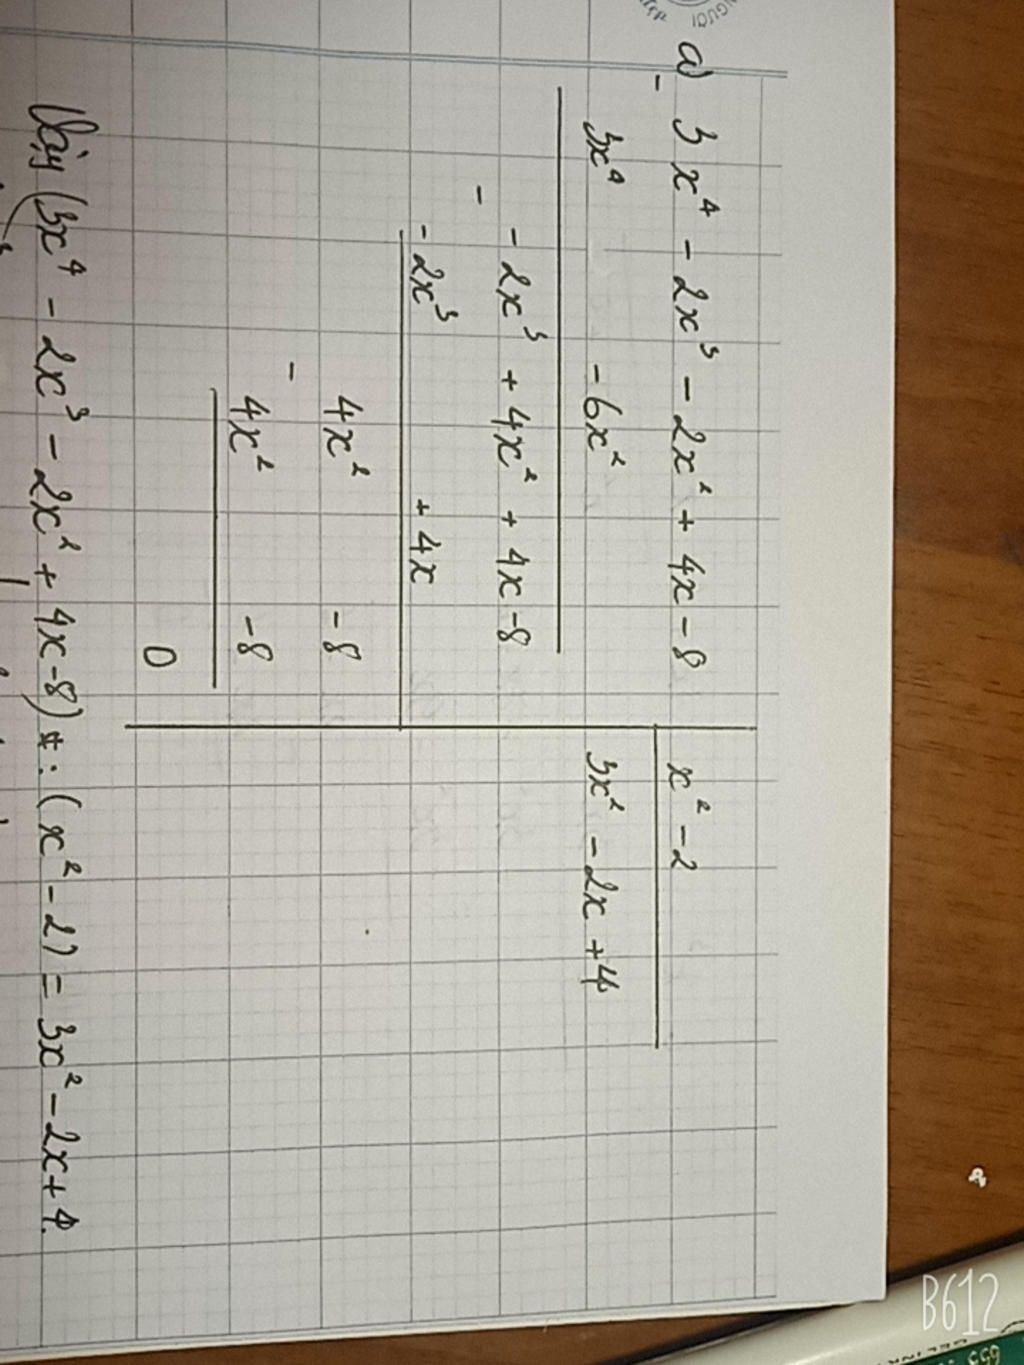 NGƯỜI
a) 3x⁴ - 2x³ - 2x² + 4x - 8 x² - 2
- 3x⁴ - 6x² 3x² - 2x + 4
- 2x³ + 4x² + 4x - 8
- - 2x³ + 4x
4x² - 8
- 4x² - 8
0
Vậy (3x⁴ - 2x³ - 2x² + 4x - 8) : (x² - 2) = 3x² - 2x + 4.
B612